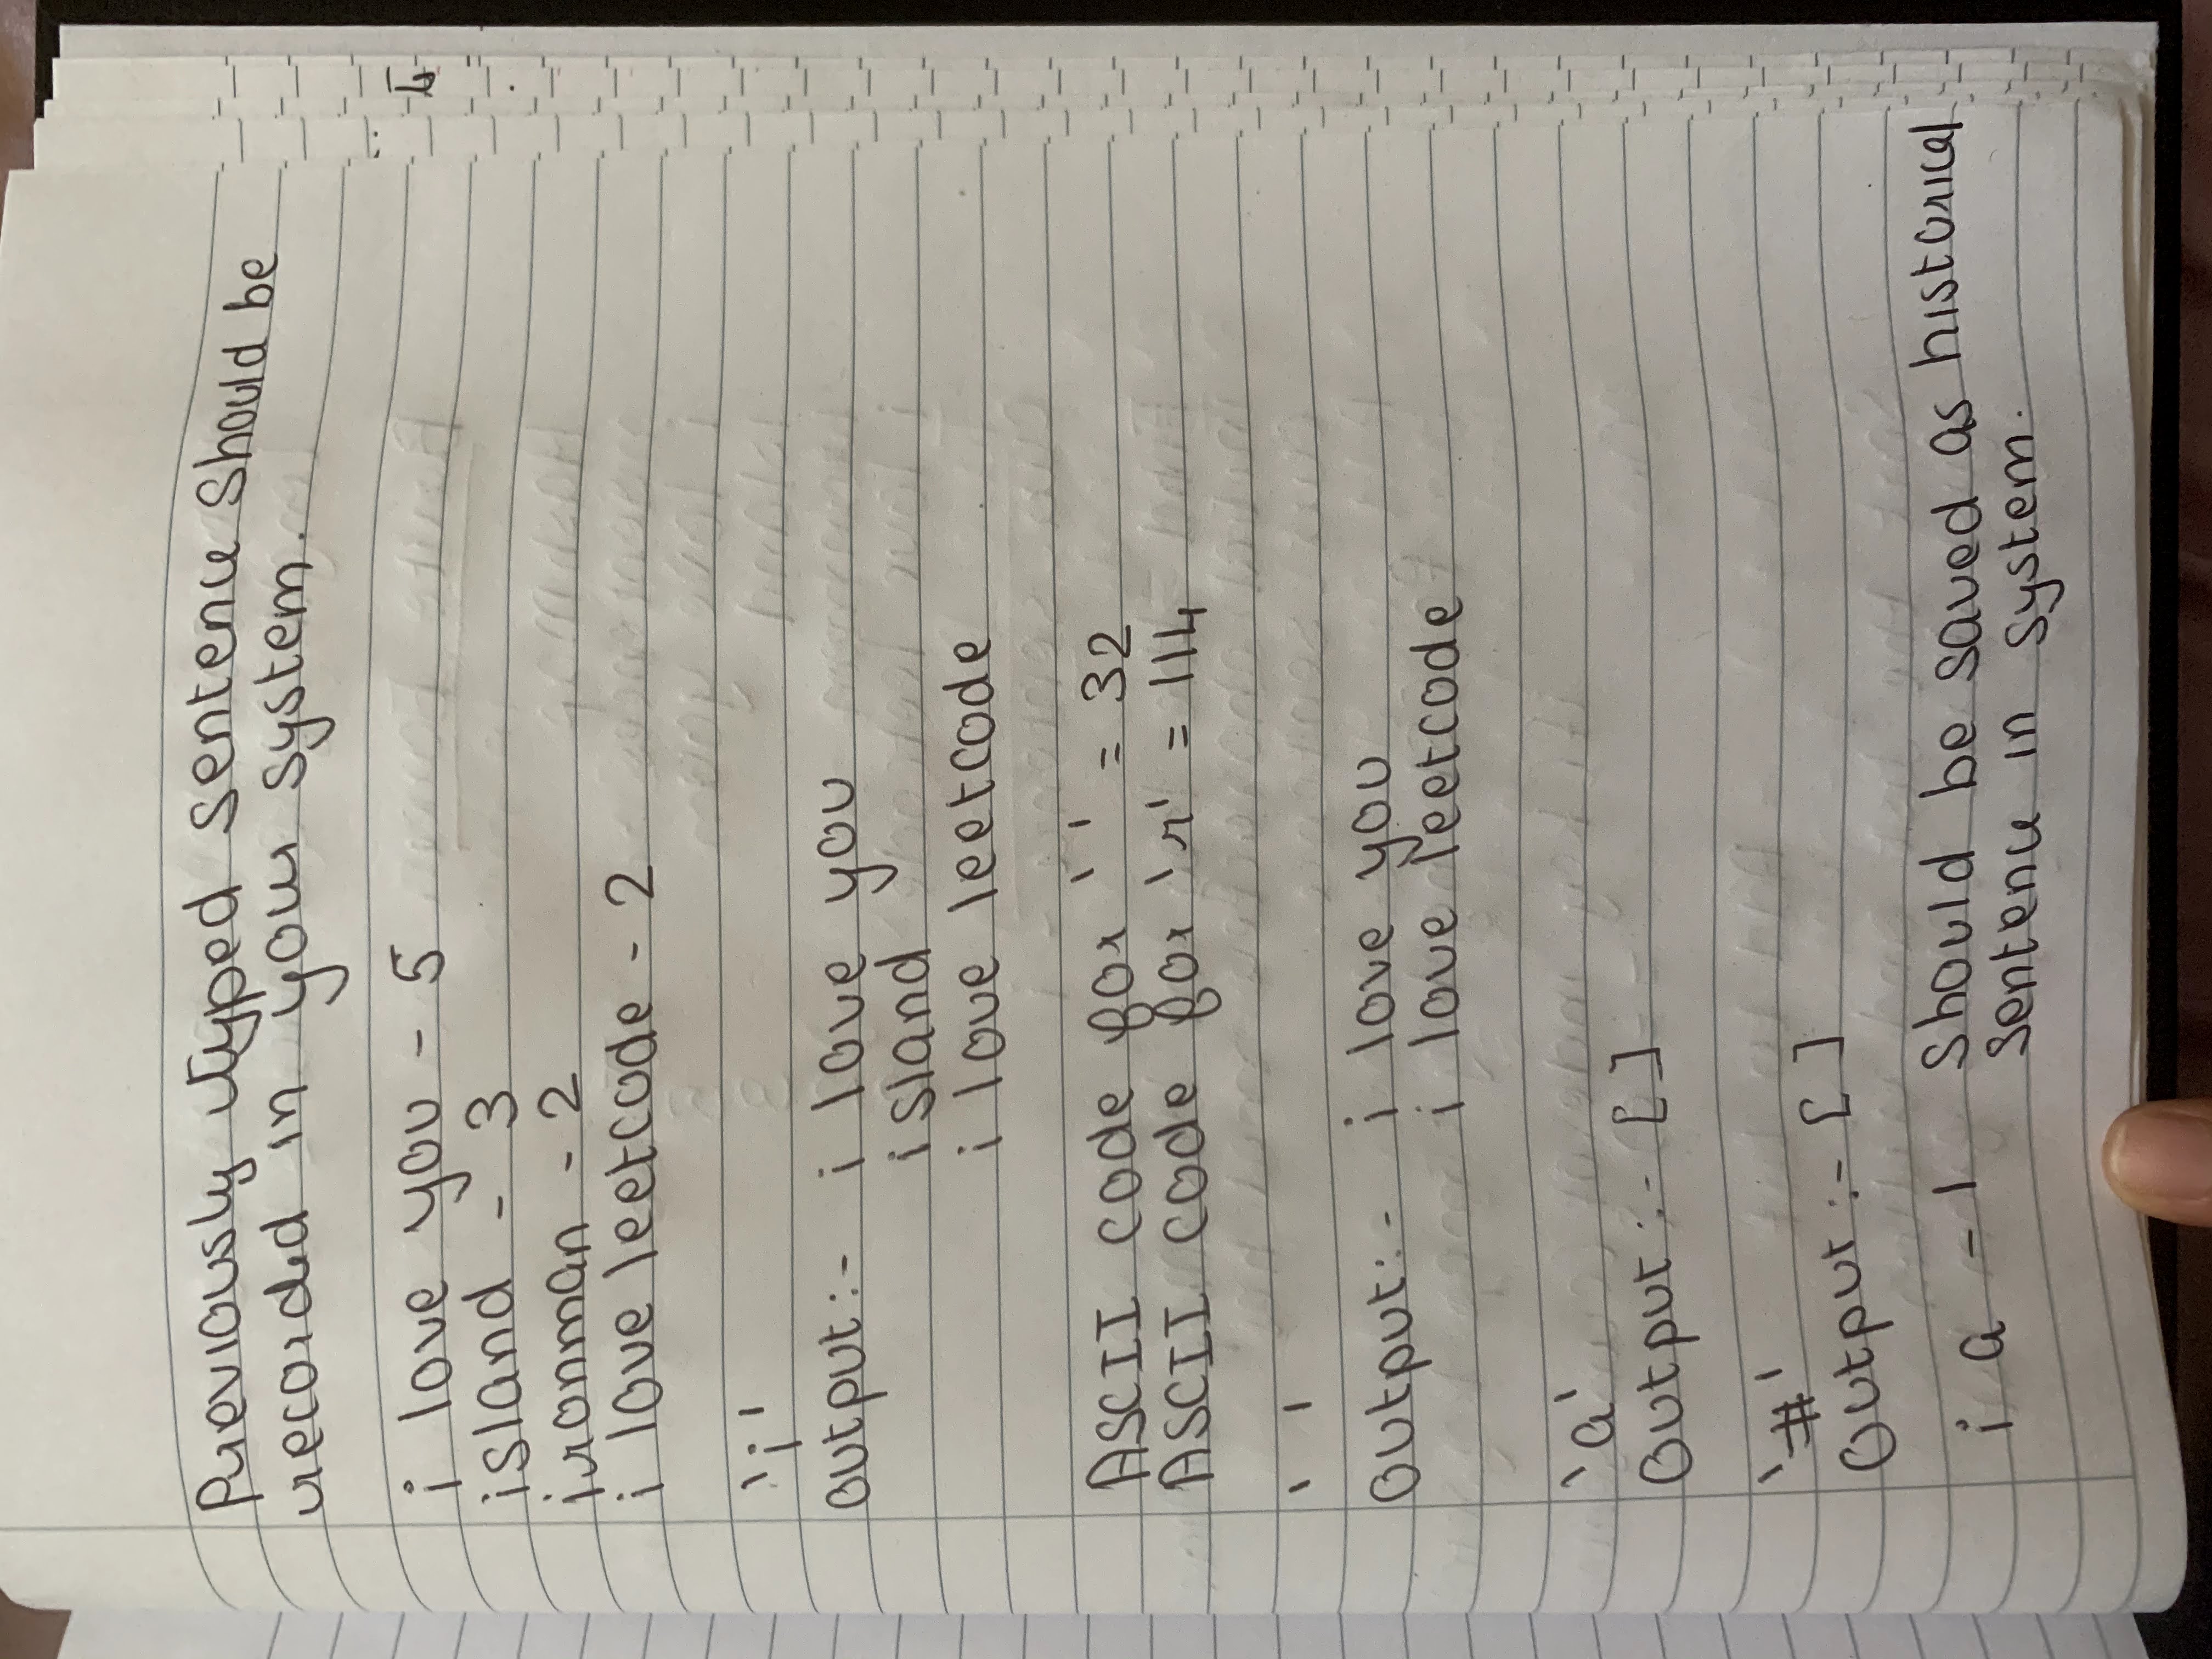 Previously typed sentence should be
recorded in your system.
i love you - 5
island - 3
ironman - 2
i love leetcode - 2
'i'
output:- i love you
island
i love leetcode
ASCII code for ' ' = 32
ASCII code for 'r' = 114
' '
Output:- i love you
i love leetcode
'a'
Output:- [ ]
'#'
Output:- [ ]
i a - 1 should be saved as historical
sentence in system.